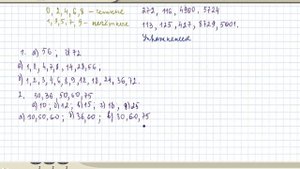 0, 2, 4, 6, 8 – четные 272, 116, 4900, 5724
1, 3, 5, 7, 9 – нечётные 113, 125, 427, 8729, 5001.
Упражнения
1. а) 56; 72
а) 1, 2, 4, 7, 8, 14, 28, 56,
б) 1, 2, 3, 4, 6, 8, 9, 12, 18, 24, 36, 72.
2. 30, 36, 50, 60, 75
а) 10; б) 12; в) 15; г) 18, д) 25
а) 30, 50, 60; б) 36, 60; в) 30, 60, 75